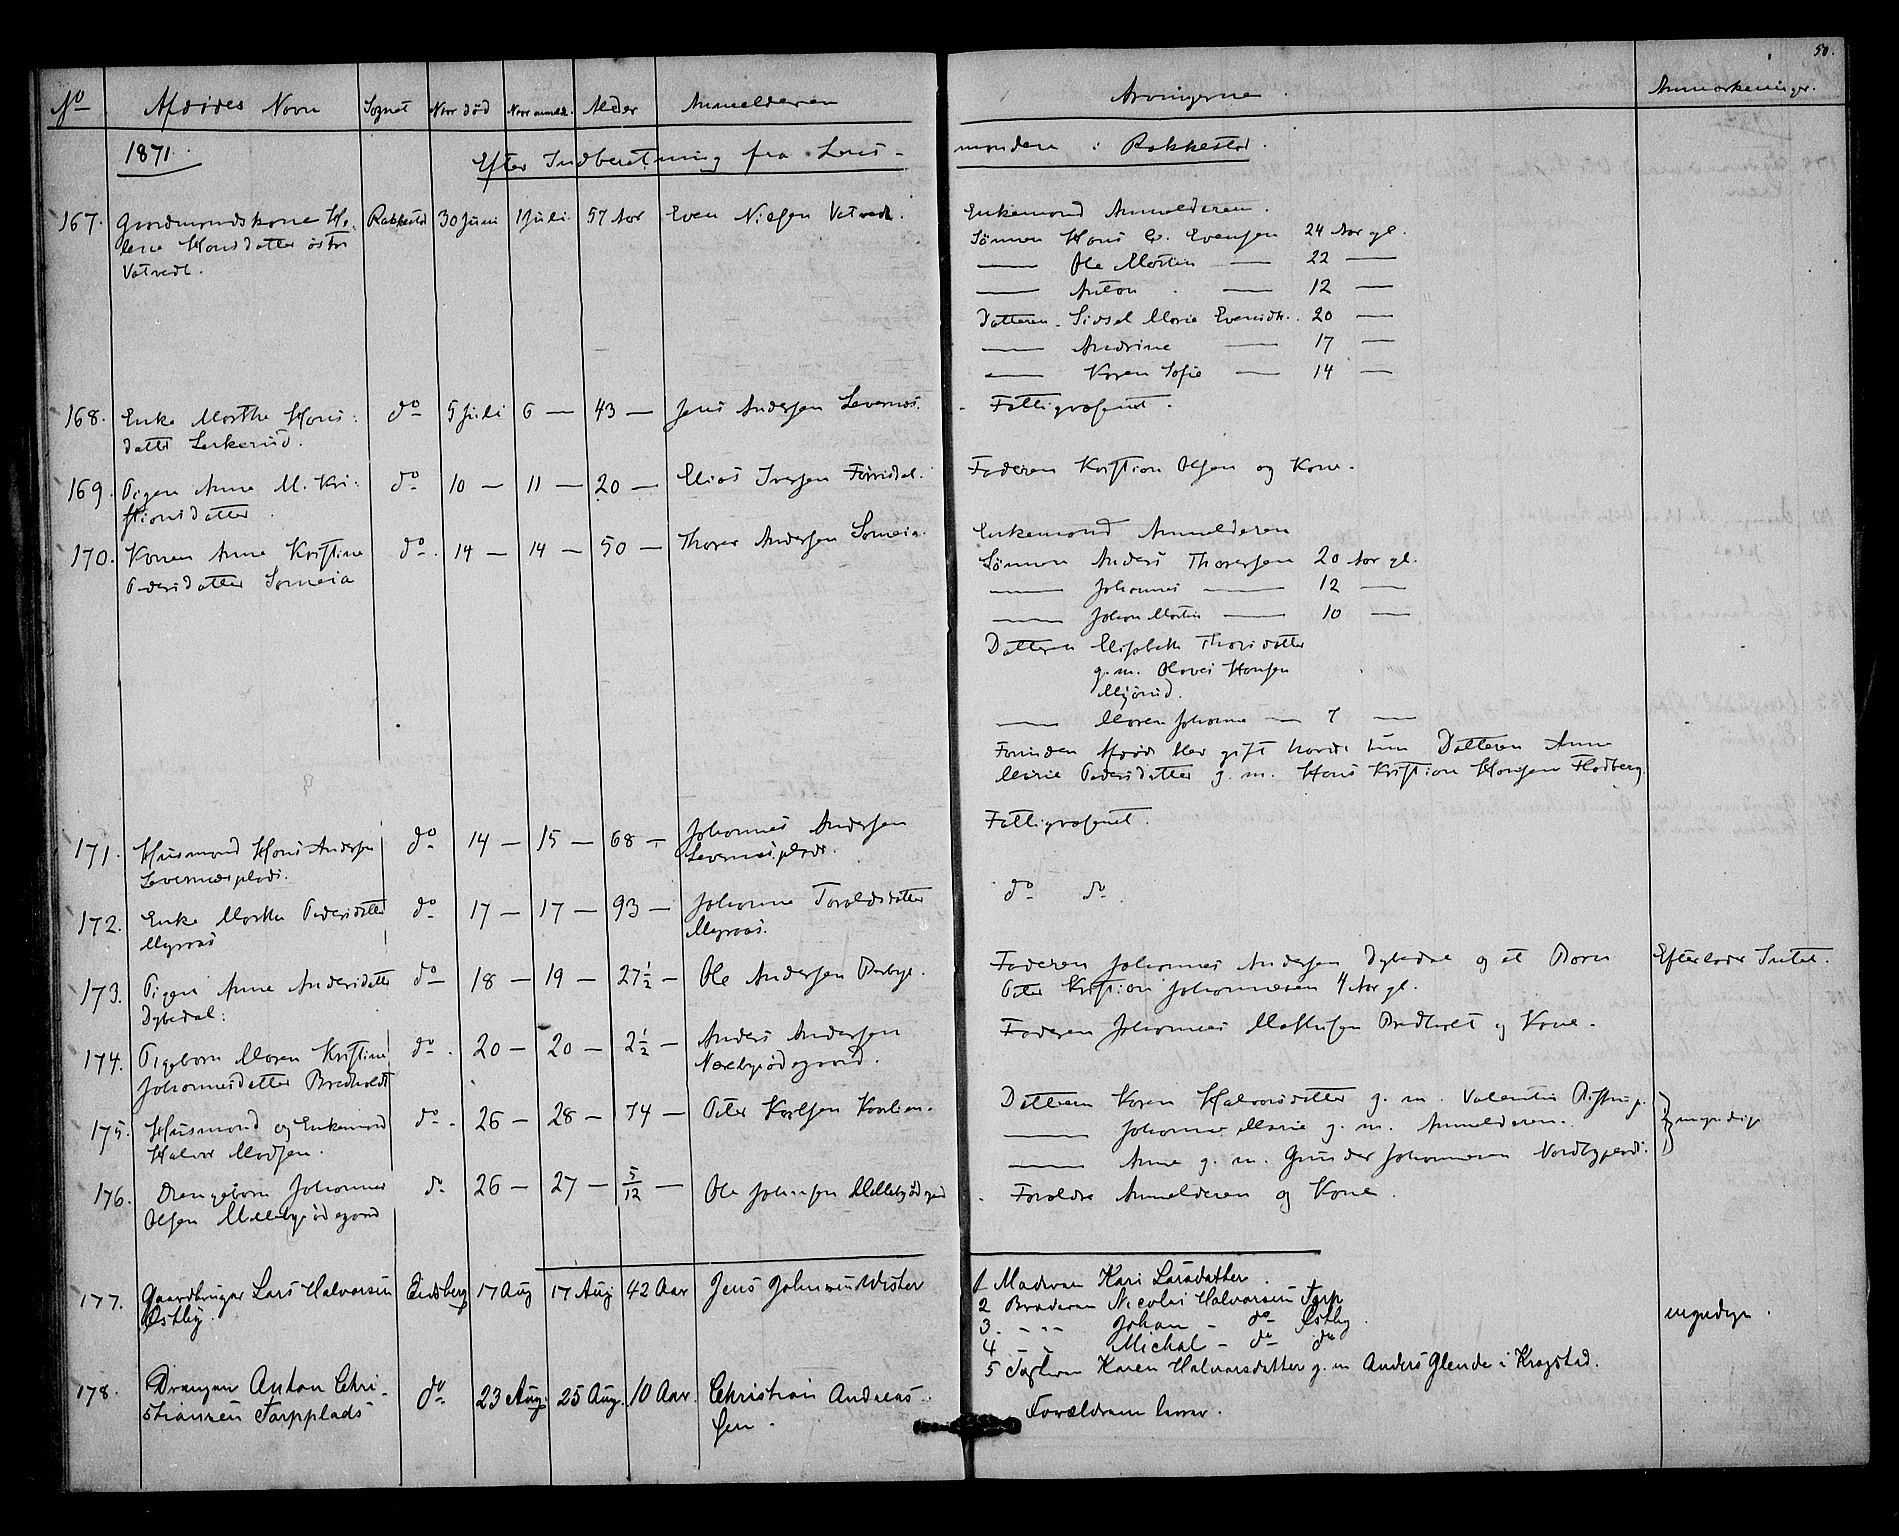 50.
No Afdødes Navn Sognet Naar død Naar anmeldt. Alder Anmelderen Arvingerne Anmærkninger.
1871. Efter Indberetning fra Lens- manden i Rakkestad.
167. Gaardmandskone He- Rakkestad 30 Juni 1 Juli 57 Aar Even Nielsen Vatvedt. Enkemand Anmelderen.
lene Hansdatter østre Sønnen Hans Evensen 24 Aar gl.
Vatvedt. — Ole Martin — 22 —
— Anton — 12 —
Datteren Sidsel Marie Evensdtr. 20 —
— Andrine — 17 —
— Karen Sofie — 14 —
168. Enke Marthe Hans- do 5 Juli 6 — 43 — Jens Andersen Levernæs. Fattigvæsenet.
datter Lerkerud.
169. Pigen Anne M. Kri- do 10 — 11 — 20 — Elias Iversen Faderen Kristian Olsen og Kone.
stiansdatter.
170. Konen Anne Kristine do. 14 — 14 — 50 — Thorer Andersen Enkemand Anmelderen
Pedersdatter Sønnen Anders Thorersen 20 Aar gl.
— Johannes — 12 —
— Johan Martin — 10 —
Datteren Elisbeth Thorsdatter
g. m. Olaves Hansen
— Maren Johanne — 7 —
Forinden Afdøde blev gift havde hun Datteren Anne
Marie Pedersdatter g. m. Hans Kristian Hansen Flodberg.
171. Husmand Hans Andersen do 14 — 15 — 68 — Johannes Andersen Fattigvæsenet.
Levernæsplads. Levernæsplads.
172. Enke Marthe Pedersdatter do 17 — 17 — 93 — Johanne Toraldsdatter do do.
Myraas Myraas.
173. Pigen Anne Andersdatter do 18 — 19 — 27½ — Ole Andersen Faderen Johannes Andersen Dybedal og et Barn Efterlader Intet.
Dybedal. Peter Kristian Johannesen 4 Aar gl.
174. Pigebarn Maren Kristine do. 20 — 20 — 2½ — Anders Andersen Faderen Johannes Mathisen Bredholt og Kone.
Johannesdatter Bredholdt Næsbyødegaard.
175. Husmand og Enkemand do. 26 — 28 — 74 — Peter Karlsen Datteren Karen Halvorsdatter g. m. Valentin
Halvor Madsen. — Johanne Marie g. m. Anmelderen. myndige
— Anne g. m. Gunder Johannesen Nordbyplads.
176. Drengebarn Johannes do. 26 — 27 — 5/12 — Ole Johnsen Mellebyødegaard Forældre Anmelderen og Kone.
Olsen Mellebyødegaard
177. Gaardbruger Lars Halvorsen Eidsberg 17 Aug 17 Aug 42 Aar Jens Johnsen Wister 1 Moderen Kari Larsdatter.
Østby. 2 Broderen Nicolai Halvorsen Torp
3. - " - Johan - do Østby. myndige.
4 - " - Michal - do do
5 Søsteren Karen Halvorsdatter g. m Anders Glende i Kragstad.
178. Drengen Anton Chri- do 23 Aug. 25 Aug. 10 Aar. Christian Andreas- Forældrene lever.
stiansen Torpplads sen.